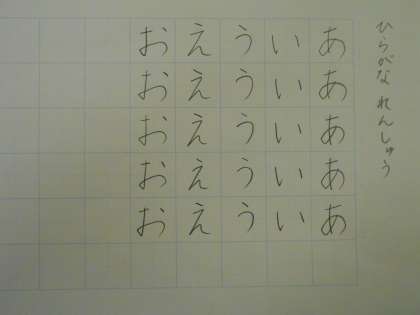 ひらがな れんしゅう
あああああ
いいいいい
ううううう
えええええ
おおおおお